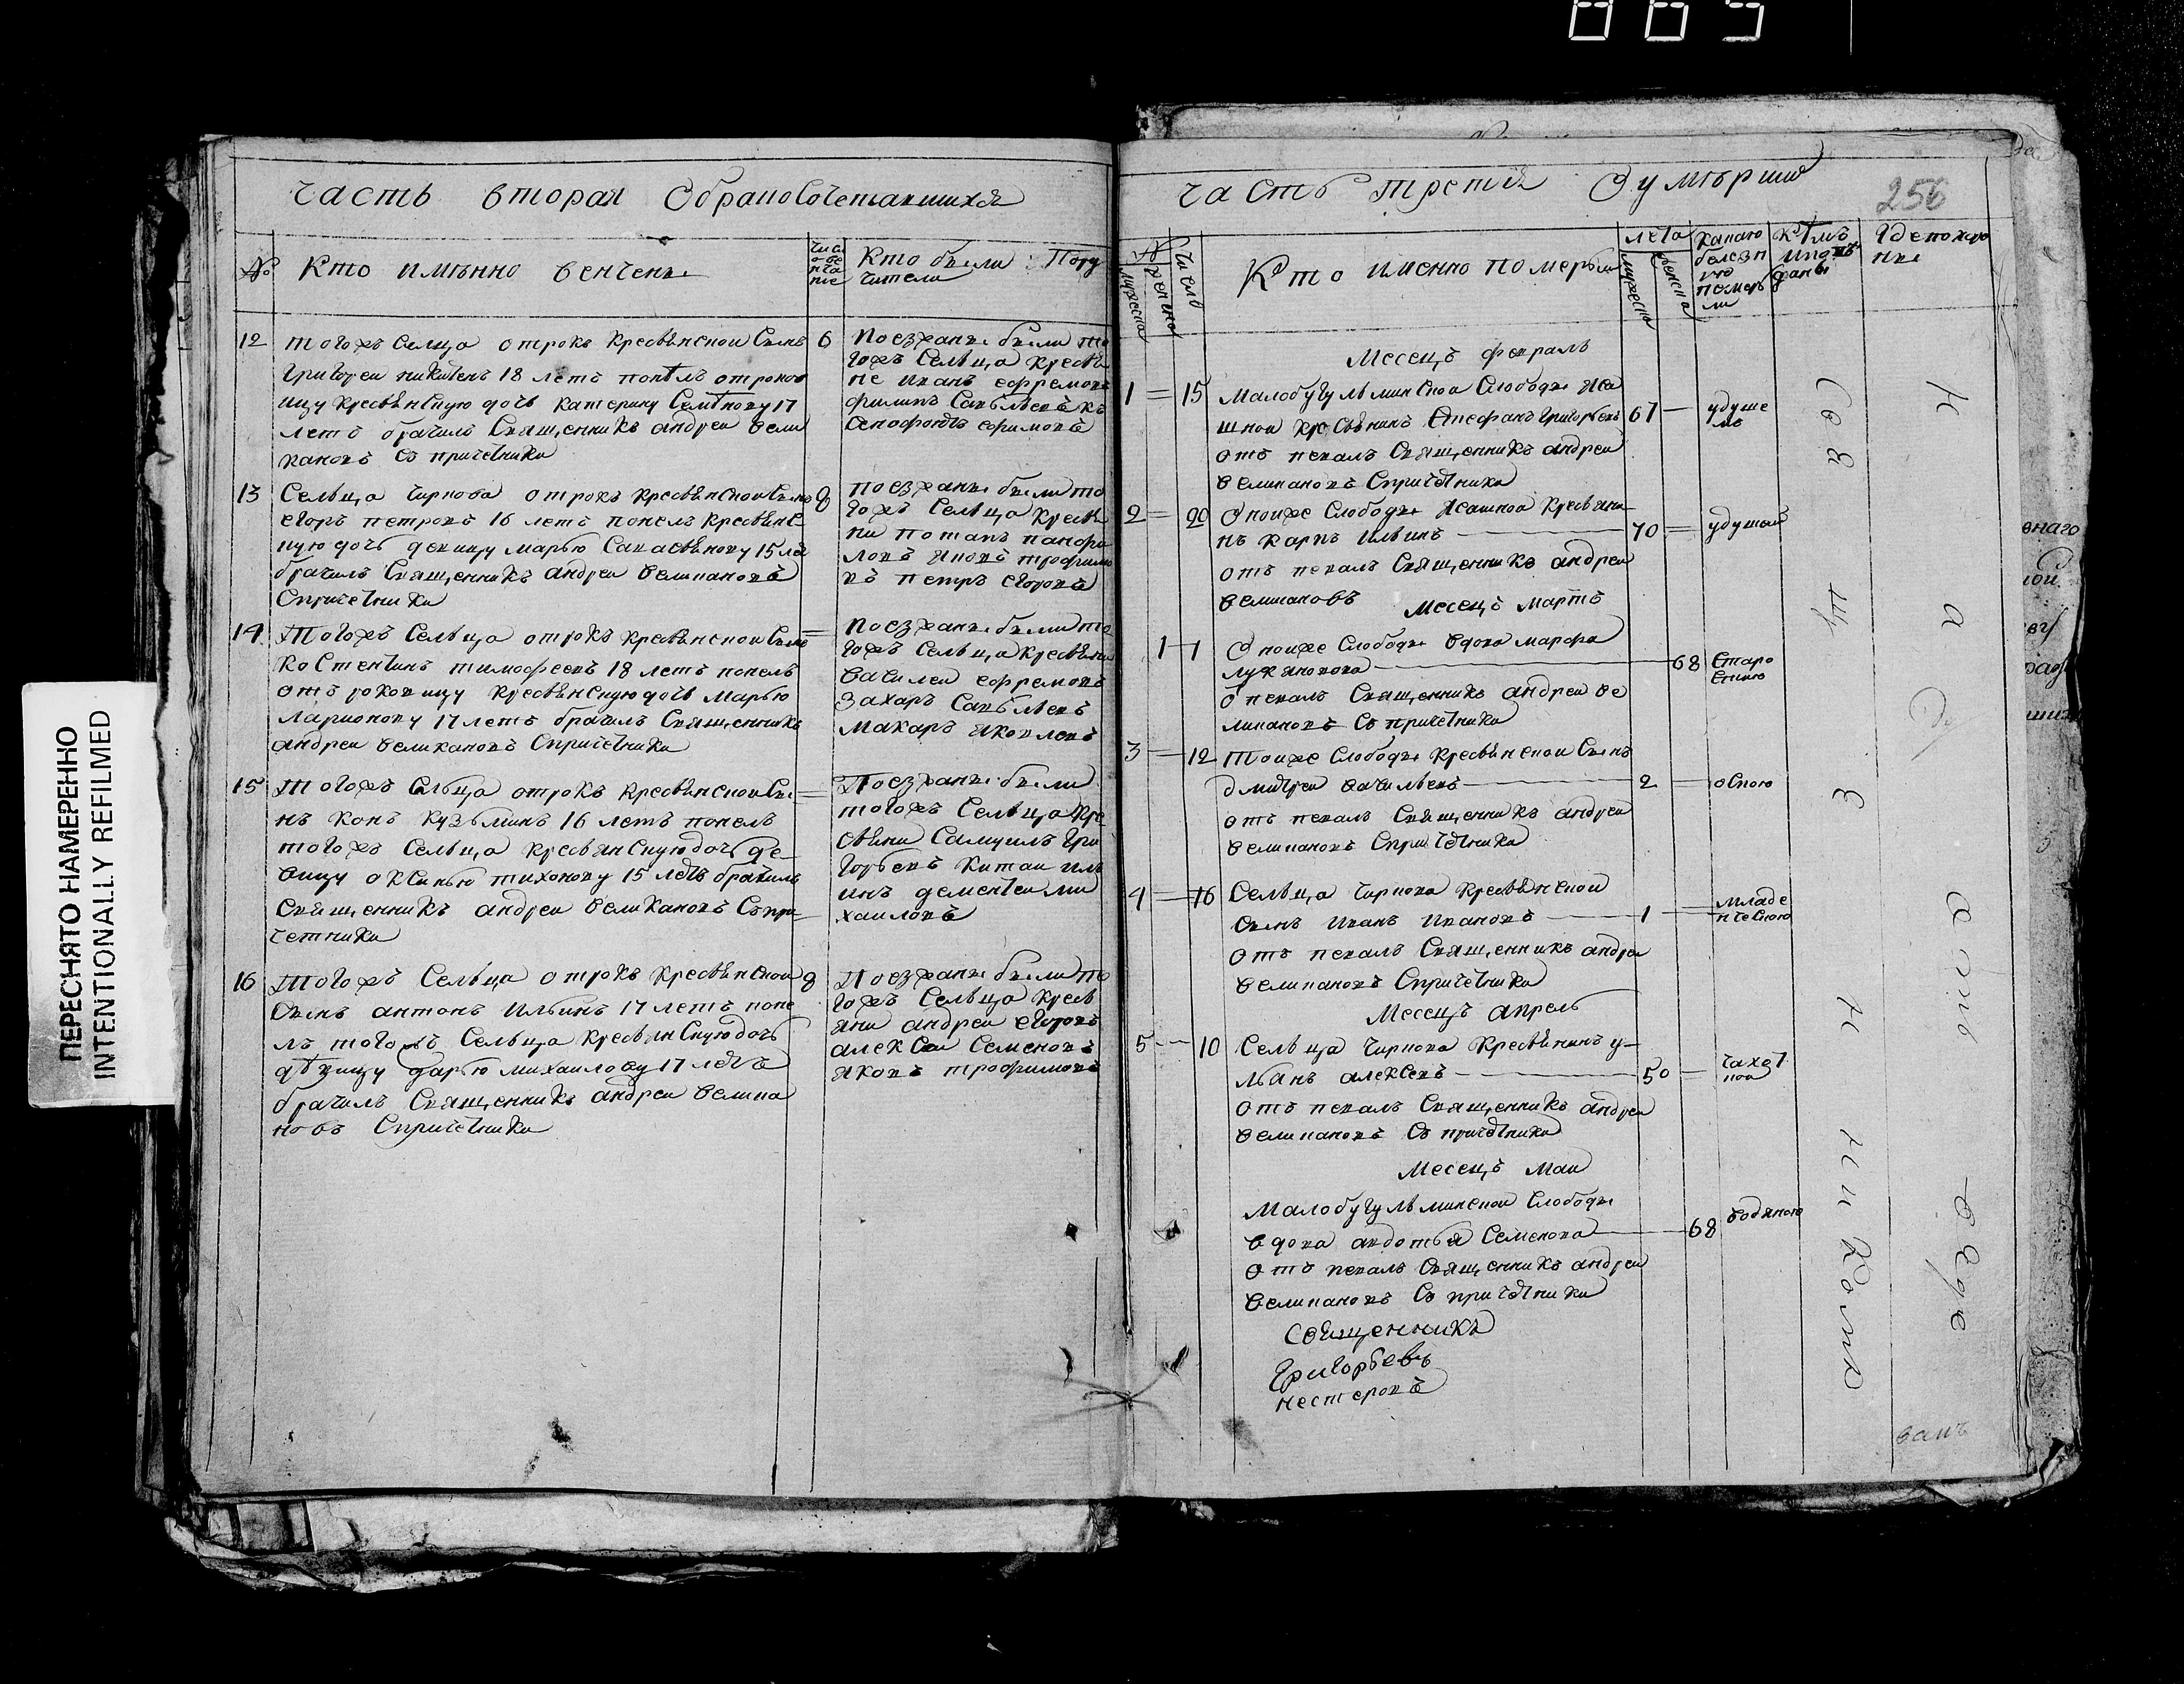 ПЕРЕСНЯТО НАМЕРЕННО
INTENTIONALLY REFILMED
часть вторая Обрапосочетавшихся
№ Кто имѣнно венчены
число венчание
Кто были Пору
чители
12 тогожъ Селца отрокъ кресьянской Сынъ 6
Григореи никитенъ 18 летъ понѣлъ отрокови
ицу кресьянскую дочь катерину Семѣнову 17
летъ брачилъ Священникъ андреи вели
кановъ съ причетники
Поезжаны были то
гожъ Сельца кресья
не иванъ ефремовъ
филипъ Савельевъ къ
Сенофонтъ ефимовъ
13 Сельца чирпова отрокъ кресьянской Сынъ 8
егоръ петровъ 16 летъ понелъ кресьянс
кую дочь девицу марью Савасьянову 15 ле
брачилъ Священникъ андреи великановъ
Спричетники
поезжаны были то
гожъ Сельца кресья
ни потапъ панфи
ловъ яковъ трофимо
въ петръ егоровъ
14 Тогожъ Сельца отрокъ кресьянской Сынъ =
костентинъ тимофеевъ 18 летъ понелъ
отъроковицу кресьянскую дочь марью
ларионову 17 летъ брачилъ Священникъ
андреи великановъ Спричетники
поезжаны были то
гожъ Сельца кресьяни
василеи ефремовъ
захаръ Савельевъ
макаръ яковлевъ
15 Тогожъ Сельца отрокъ кресьянской Сы =
нъ конъ кузьминъ 16 летъ понелъ
тогожъ Сельца кресьянскую дочь де-
вицу оксинью тихонову 15 летъ брачилъ
Священникъ андреи великановъ Съпри-
четники
Поезжаны были
тогожъ Сельца кре-
сьяни Самуилъ Гри
горьевъ китаи иль
инъ дементеи ми
хаиловъ
16 Тогожъ Сельца отрокъ кресьянской 8
Сынъ антонъ ильинъ 17 летъ поне
лъ тогожъ Сельца кресьянскую дочь
дѣвицу дарью михаилову 17 летъ
брачилъ Священникъ андреи велика
новъ Спричетники
Поезжаны были то
гожъ Сельца кресь
яни андреи егоровъ
алексеи Семеновъ
яковъ трофимовъ
часть третия Оумѣрших
256
№
мужеска
женска
число
Кто именно померъли
лета
мужеска
женска
какаю
болезн
ию
помер
ли
кѣмъ
исповѣ
даны
Где похоро
нены
Месецъ февраль
1 = 15 Малобугульминской Слободы Яса
шнои кресьянинъ Стефанъ Григорьевъ 67 — удуше
мъ
отъ певалъ Священникъ андреи
великановъ Спричетники
2 = 20 Тоиже Слободы Ясашной Кресьяни
нъ карпъ ильинъ — 70 — удушьей
отъ певалъ Священникъ андреи
великановъ
Месецъ мартъ
1 1 Тоиже Слободы вдова марфа
лукянова — 68 Старо
стию
отпевалъ Священникъ андреи ве
ликановъ Съ причетники
3 — 12 Тоиже Слободы кресьянской Сынъ
дмитреи васильевъ — 2 — оспою
отъ певалъ Священникъ андреи
великановъ Спричетники
4 — 16 Сельца чирпова кресьянской
Сынъ иванъ ивановъ — 1 — младе
нческою
отъ певалъ Священникъ андреи
великановъ Спричетники
Месецъ апрель
5 — 10 Сельца чирпова Кресьянинъ у-
льянъ алексевъ — 50 — чахот
кои
отъ певалъ Священникъ андреи
великановъ Съ причетники
Месецъ Маи
Малобугульминской Слободы
вдова авдотья Семенова — 68 водяною
отъ певалъ Священникъ андреи
великановъ Съ причетники
Священникъ
Григорьевъ
нестеровъ